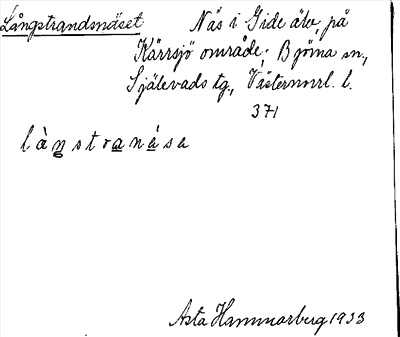 Långstrandsnäset Näs i Gide älv, på
Kärrsjö område; Björna sn,
Själevads tg, Västernorrl. l.
371
lànstranása
Asta Hammarberg 1933